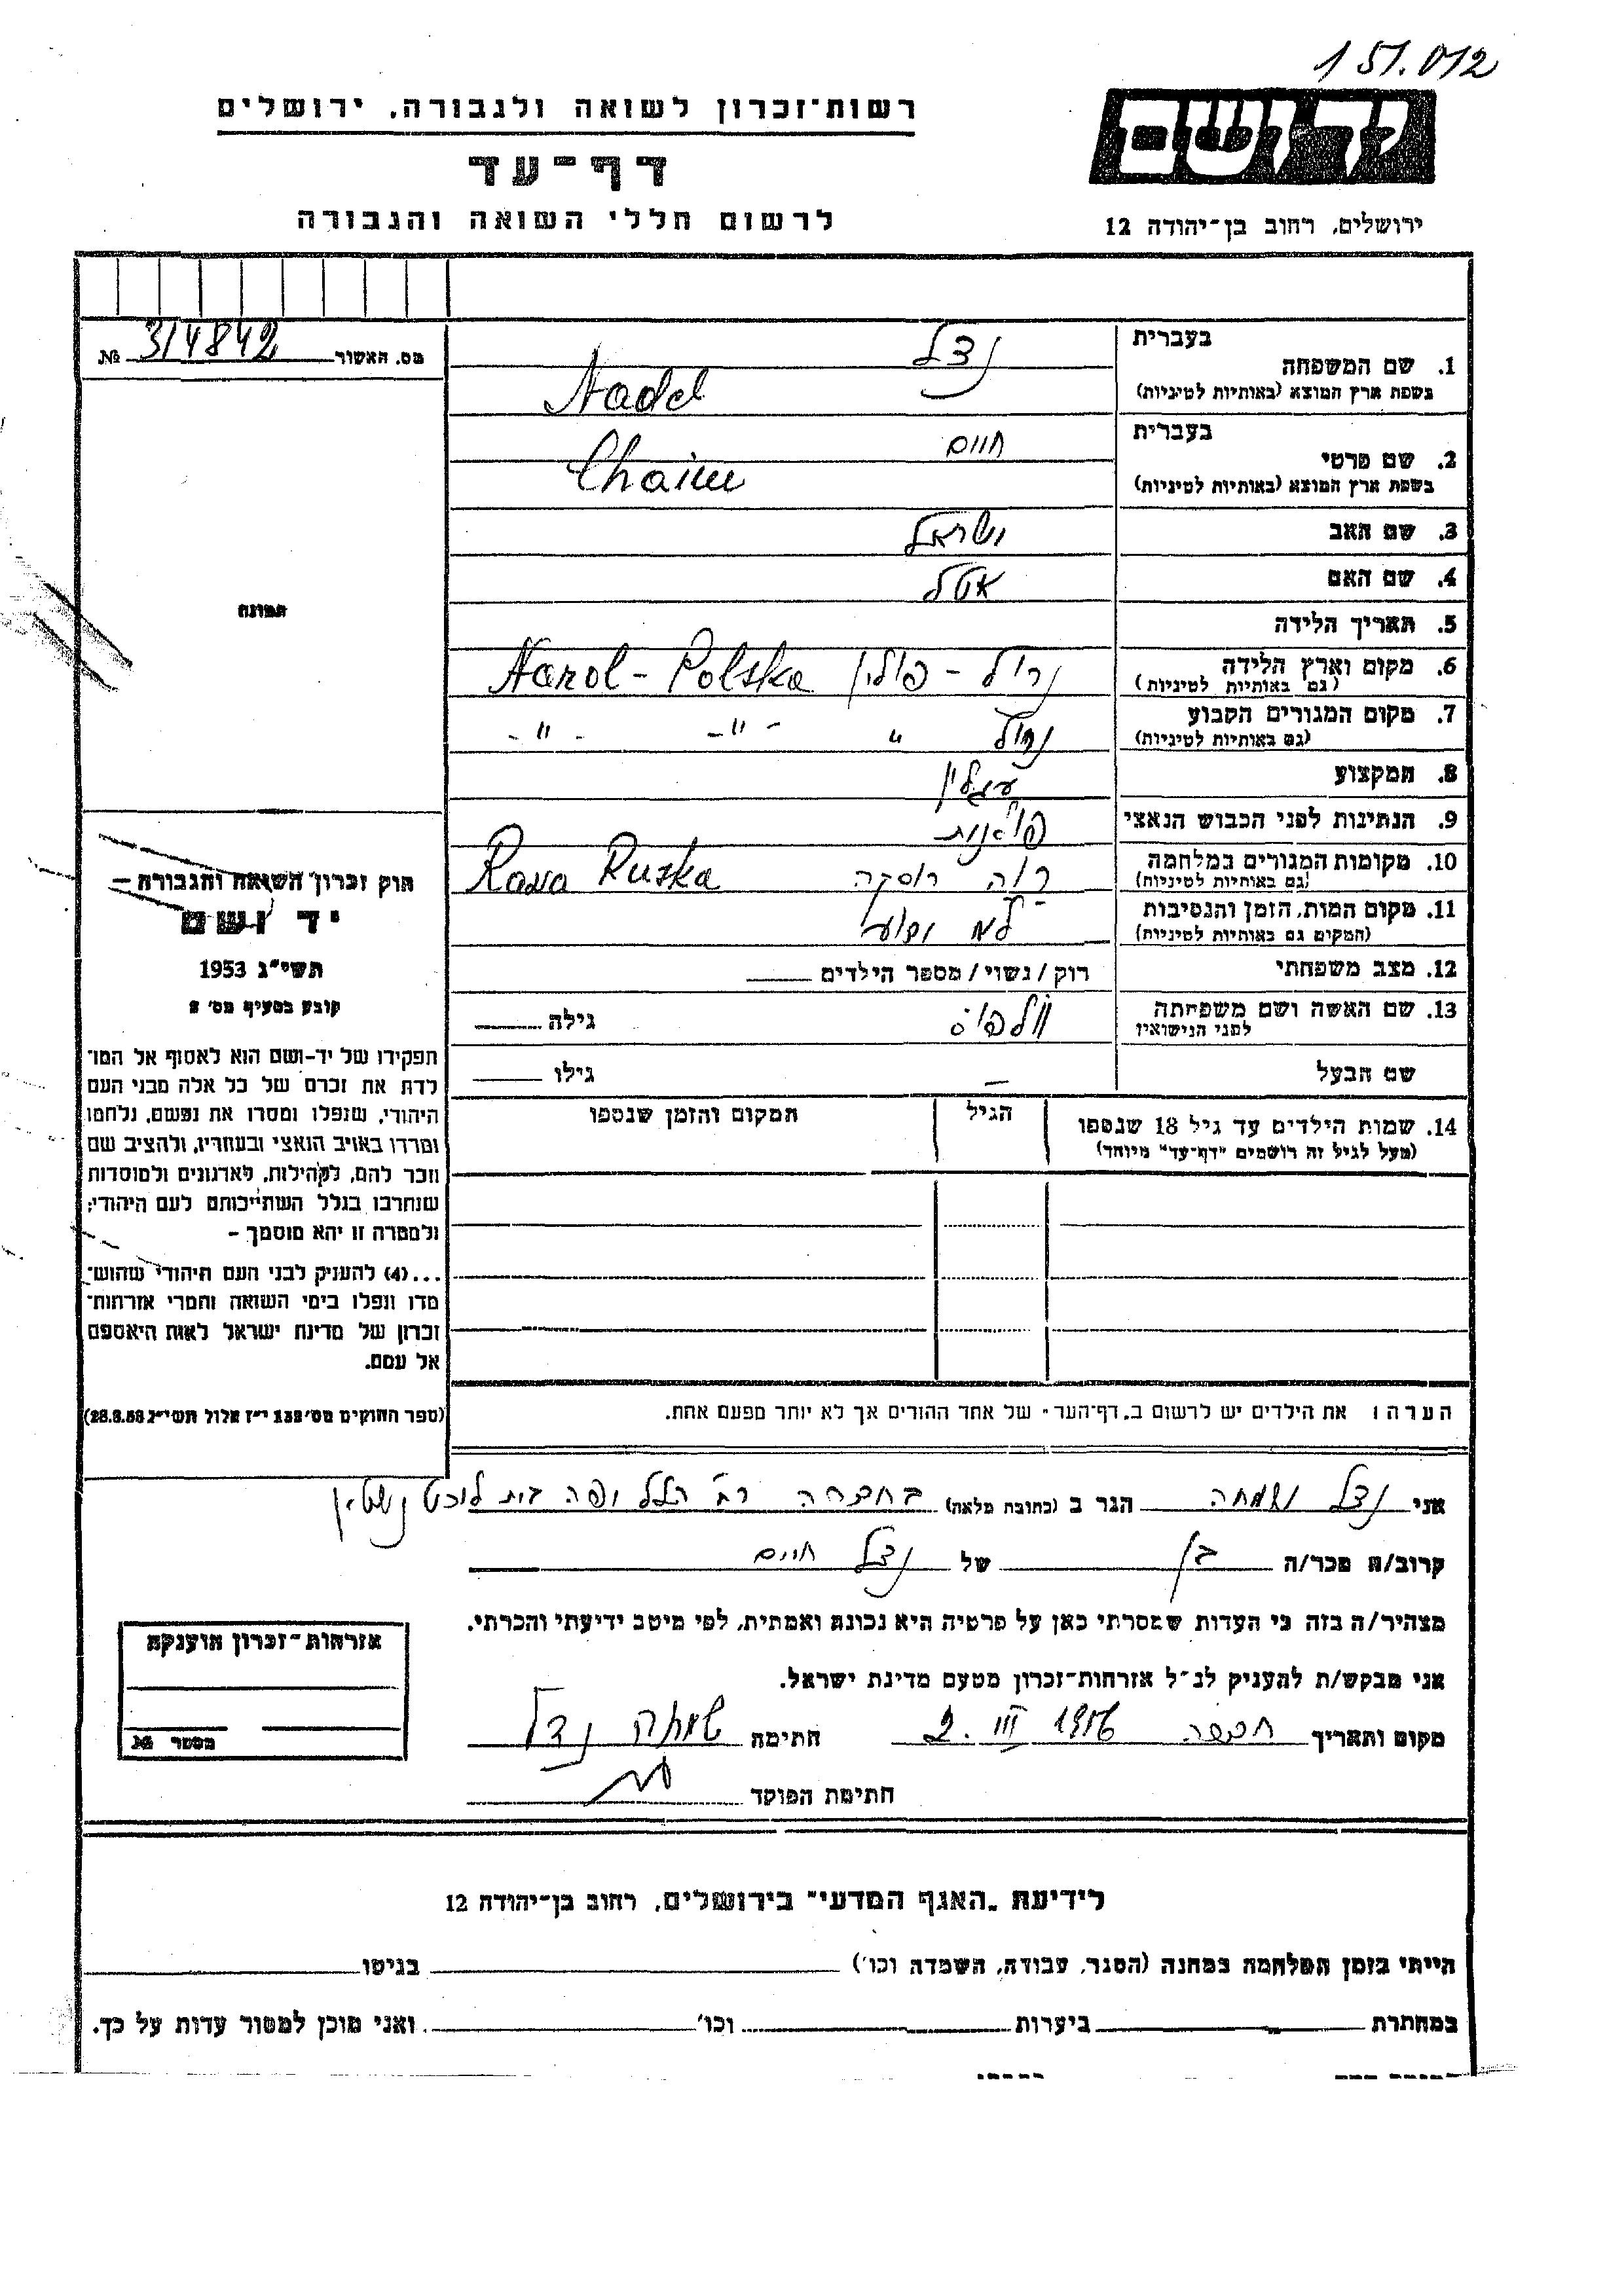 151.012
רשות־זכרון לשואה ולגבורה, ירושלים
יד ושם
דף־עד
לרשום חללי השואה והגבורה
ירושלים, רחוב בן־יהודה 12
מס. האשור 314842 №
בעברית נדל
1. שם המשפחה
בשפת ארץ המוצא (באותיות לטיניות) Nadel
בעברית חיים
2. שם פרטי
בשפת ארץ המוצא (באותיות לטיניות) Chaim
3. שם האב ישראל
4. שם האם אטל
5. תאריך הלידה
6. מקום וארץ הלידה נרול - פולין Narol - Polska
(גם באותיות לטיניות)
7. מקום המגורים הקבוע נרול " - " - - " -
(גם באותיות לטיניות)
8. המקצוע עגלון
9. הנתינות לפני הכבוש הנאצי פולנית
10. מקומות המגורים במלחמה רוה רוסקה Rava Ruska
(גם באותיות לטיניות)
11. מקום המות, הזמן והנסיבות לא ידוע
(המקום גם באותיות לטיניות)
12. מצב משפחתי רוק / נשוי / מספר הילדים
13. שם האשה ושם משפחתה גילה
לפני הנישואין
שם הבעל — גילו
14. שמות הילדים עד גיל 18 שנספו הגיל המקום והזמן שנספו
(מעל לגיל זה רושמים "דף־עד" מיוחד)
תמונה
חוק זכרון השואה והגבורה —
יד ושם
תשי"ג 1953
קובע בסעיף מס' 2
תפקידו של יד-ושם הוא לאסוף אל המו־
לדת את זכרם של כל אלה מבני העם
היהודי, שנפלו ומסרו את נפשם, נלחמו
ומרדו באויב הנאצי ובעוזריו, ולהציב שם
וזכר להם, לקהילות, לארגונים ולמוסדות
שנחרבו בגלל השתייכותם לעם היהודי;
ולמטרה זו יהא מוסמך –
...(4) להעניק לבני העם היהודי שהוש־
מדו ונפלו בימי השואה והמרי אזרחות־
זכרון של מדינת ישראל לאות היאספם
אל עמם.
(ספר החוקים מס' 132 י"ז אלול תשי"ג 28.8.53)
הערה: את הילדים יש לרשום ב„דף־העד" של אחד ההורים אך לא יותר מפעם אחת.
אני נדל שמחה הגר ב (כתובת מלאה) רח' הלל יפה בית
קרוב/ה מכר/ה בן של נדל חיים
מצהיר/ה בזה כי העדות שמסרתי כאן על פרטיה היא נכונה ואמתית, לפי מיטב ידיעתי והכרתי.
אני מבקש/ת להעניק לנ"ל אזרחות־זכרון מטעם מדינת ישראל.
מקום ותאריך חדרה 2. III 1956 חתימה שמחה נדל
חתימת הפוקד
אזרחות־זכרון הוענקה
מספר №
לידיעת „האגף המדעי" בירושלים, רחוב בן־יהודה 12
הייתי בזמן המלחמה במחנה (הסגר, עבודה, השמדה וכו') בגיטו
במחתרת ביערות וכו' ואני מוכן למסור עדות על כך.